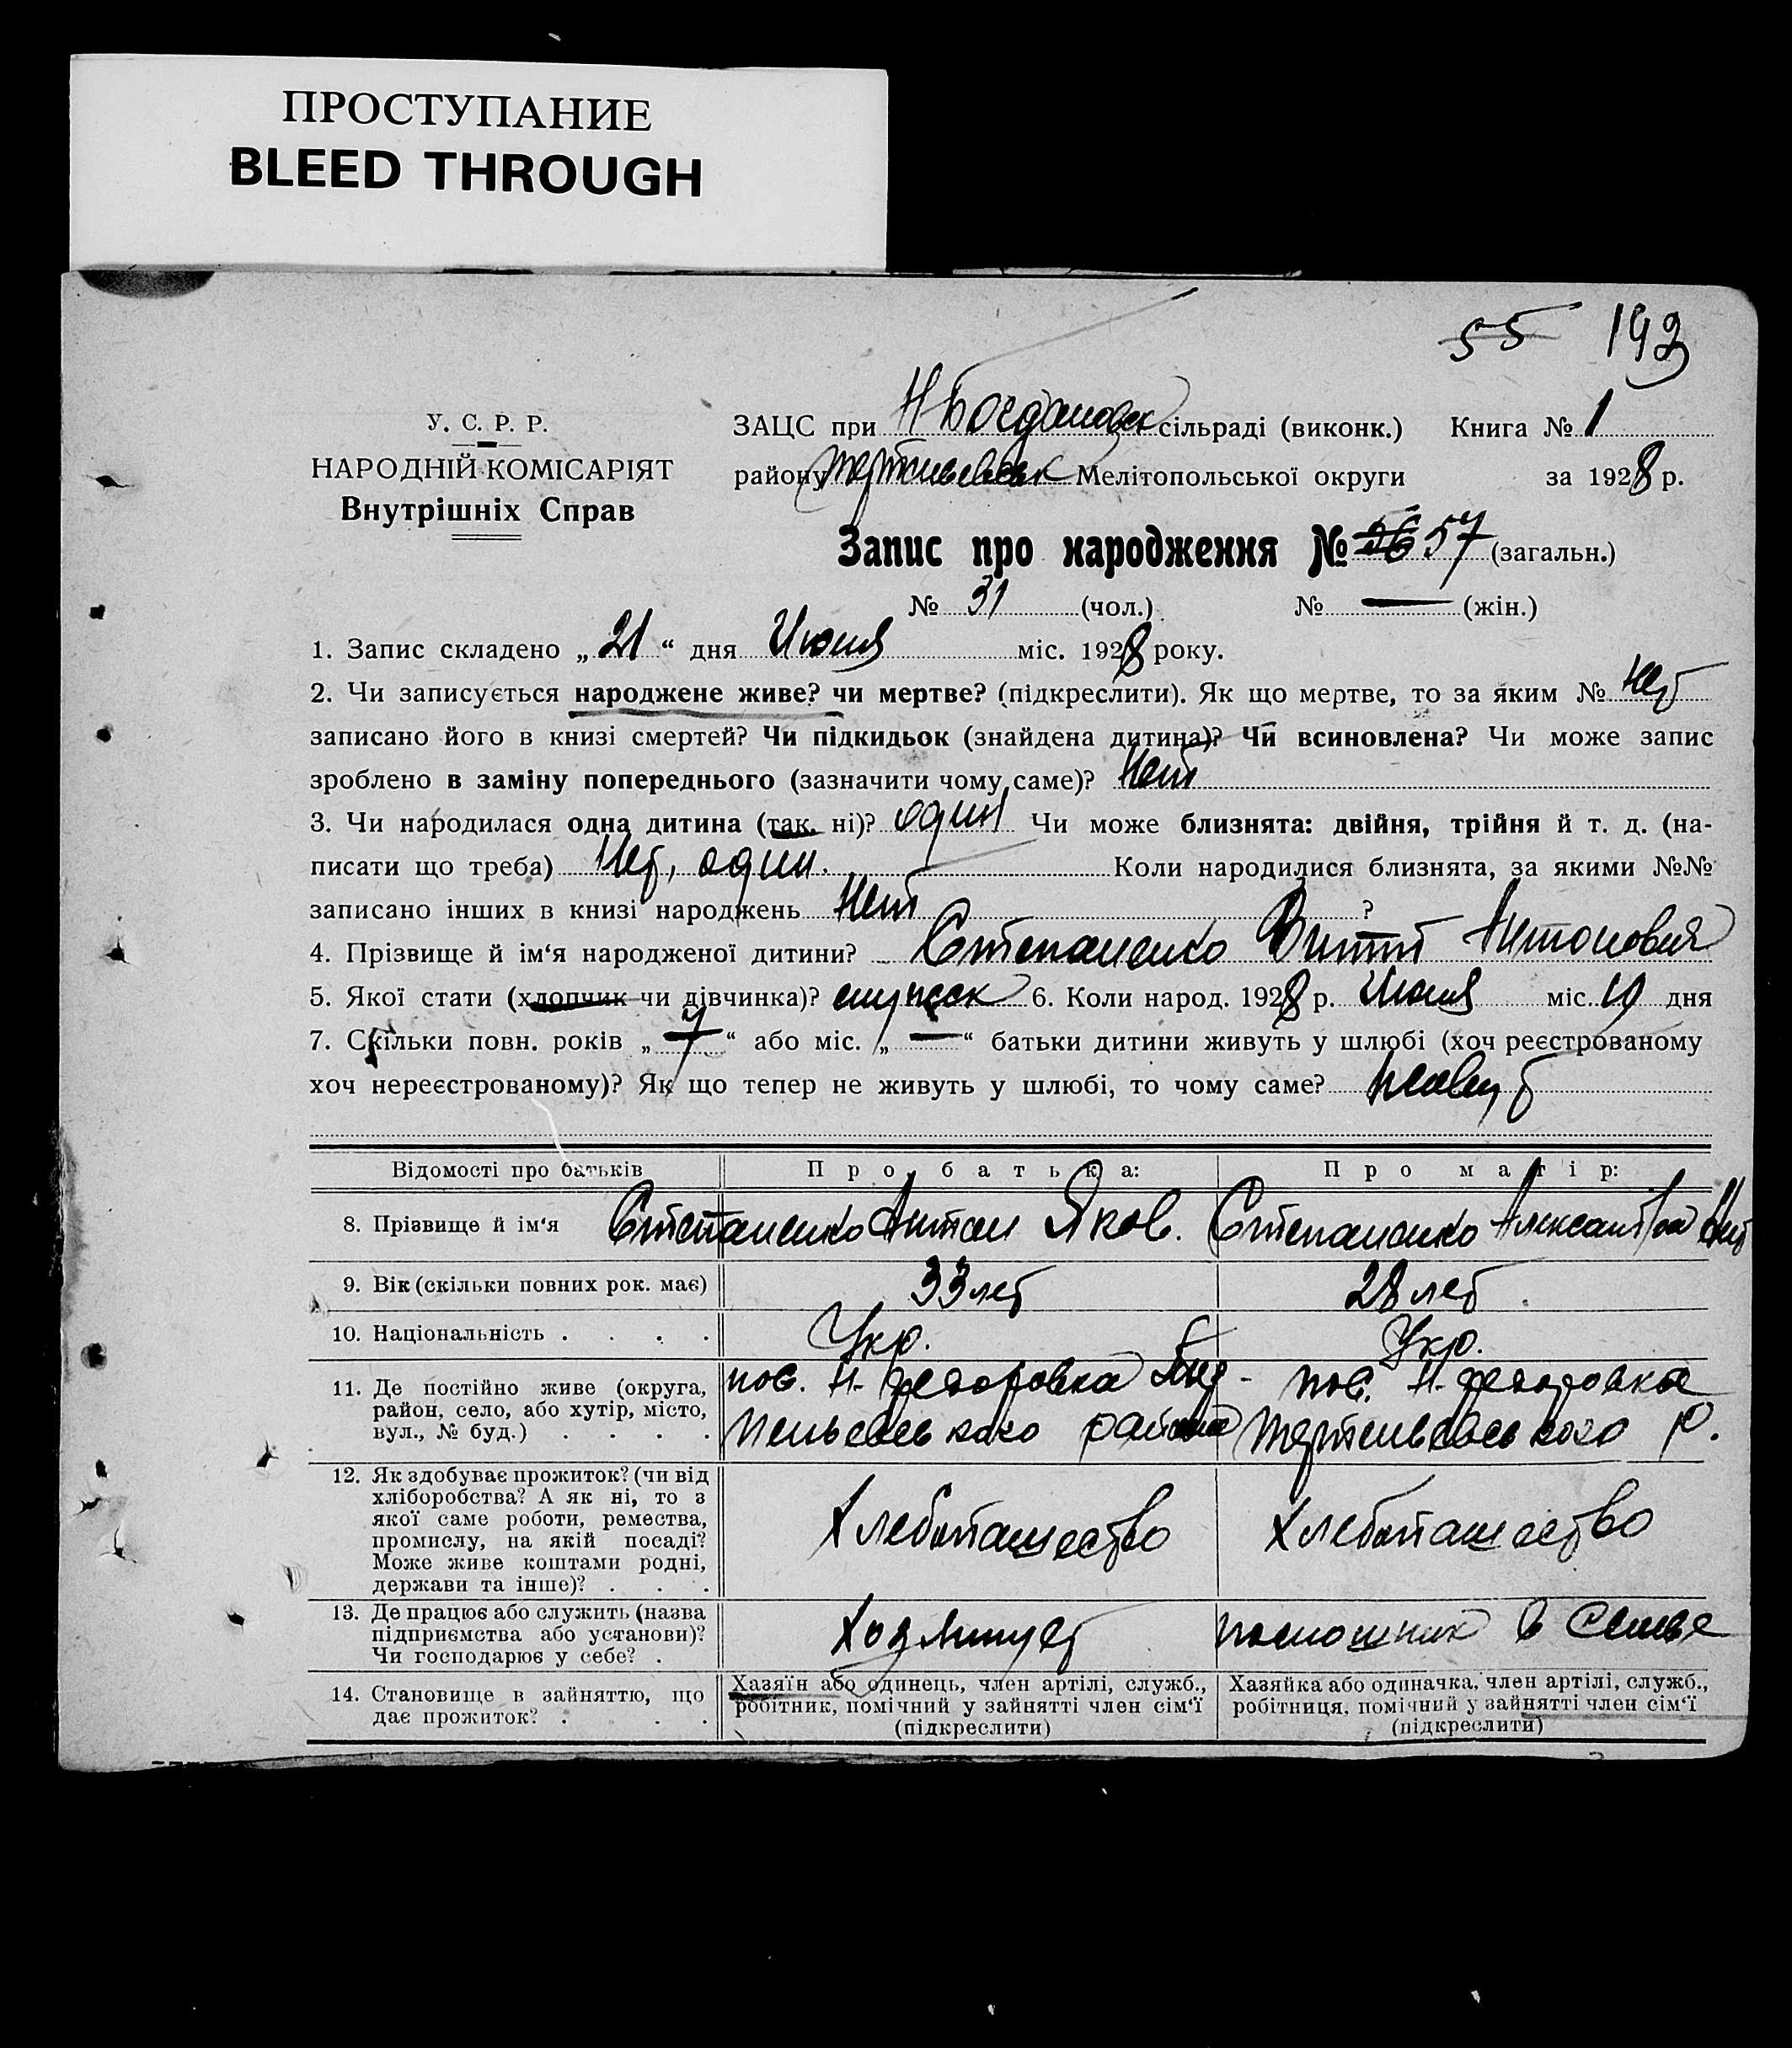 ПРОСТУПАНИЕ
BLEED THROUGH
55 193
У. С. Р. Р.
НАРОДНІЙ КОМІСАРІЯТ
Внутрішніх Справ
ЗАЦС при Н Богдановск сільраді (виконк.) Книга № 1
району Мелітопольської округи за 1928 р.
Запис про народження № 56 57 (загальн.)
№ 31 (чол.) № — (жін.)
1. Запис складено „ 21 “ дня Июня міс. 1928 року.
2. Чи записується народжене живе? чи мертве? (підкреслити). Як що мертве, то за яким № Нет
записано його в книзі смертей? Чи підкидьок (знайдена дитина)? Чи всиновлена? Чи може запис
зроблено в заміну попереднього (зазначити чому саме)? Нет
3. Чи народилася одна дитина (так, ні)? один Чи може близнята: двійня, трійня й т. д. (на-
писати що треба) Нет, один. Коли народилися близнята, за якими №№
записано інших в книзі народжень Нет ?
4. Прізвище й ім‘я народженої дитини? Степаненко Антонович
5. Якої стати (хлопчик чи дівчинка)? 6. Коли народ. 1928 р. Июня міс. 19 дня
7. Скільки повн. років „ 7 “ або міс. „ — “ батьки дитини живуть у шлюбі (хоч реєстрованому
хоч нереєстрованому)? Як що тепер не живуть у шлюбі, то чому саме? живут
Відомості про батьків Про батька: Про матір:
8. Прізвище й ім‘я Степаненко Антон Яков. Степаненко Александра
9. Вік (скільки повних рок. має) 33 лет 28 лет
10. Національність . . . . Укр. Укр.
11. Де постійно живе (округа,
район, село, або хутір, місто,
вул., № буд.) . . . .
пос. Н-федоровка
района
пос. Н-федоровка
р.
12. Як здобуває прожиток? (чи від
хліборобства? А як ні, то з
якої саме роботи, ремества,
промислу, на якій посаді?
Може живе коштами родні,
держави та інше)? . . .
Хлебопашество Хлебопашество
13. Де працює або служить (назва
підприємства або установи)?
Чи господарює у себе? .
помошник в семье
14. Становище в зайняттю, що
дає прожиток? . . .
Хазяїн або одинець, член артілі, служб.,
робітник, помічний у зайнятті член сім‘ї
(підкреслити)
Хазяйка або одиначка, член артілі, служб.,
робітниця, помічний у зайнятті член сім‘ї
(підкреслити)